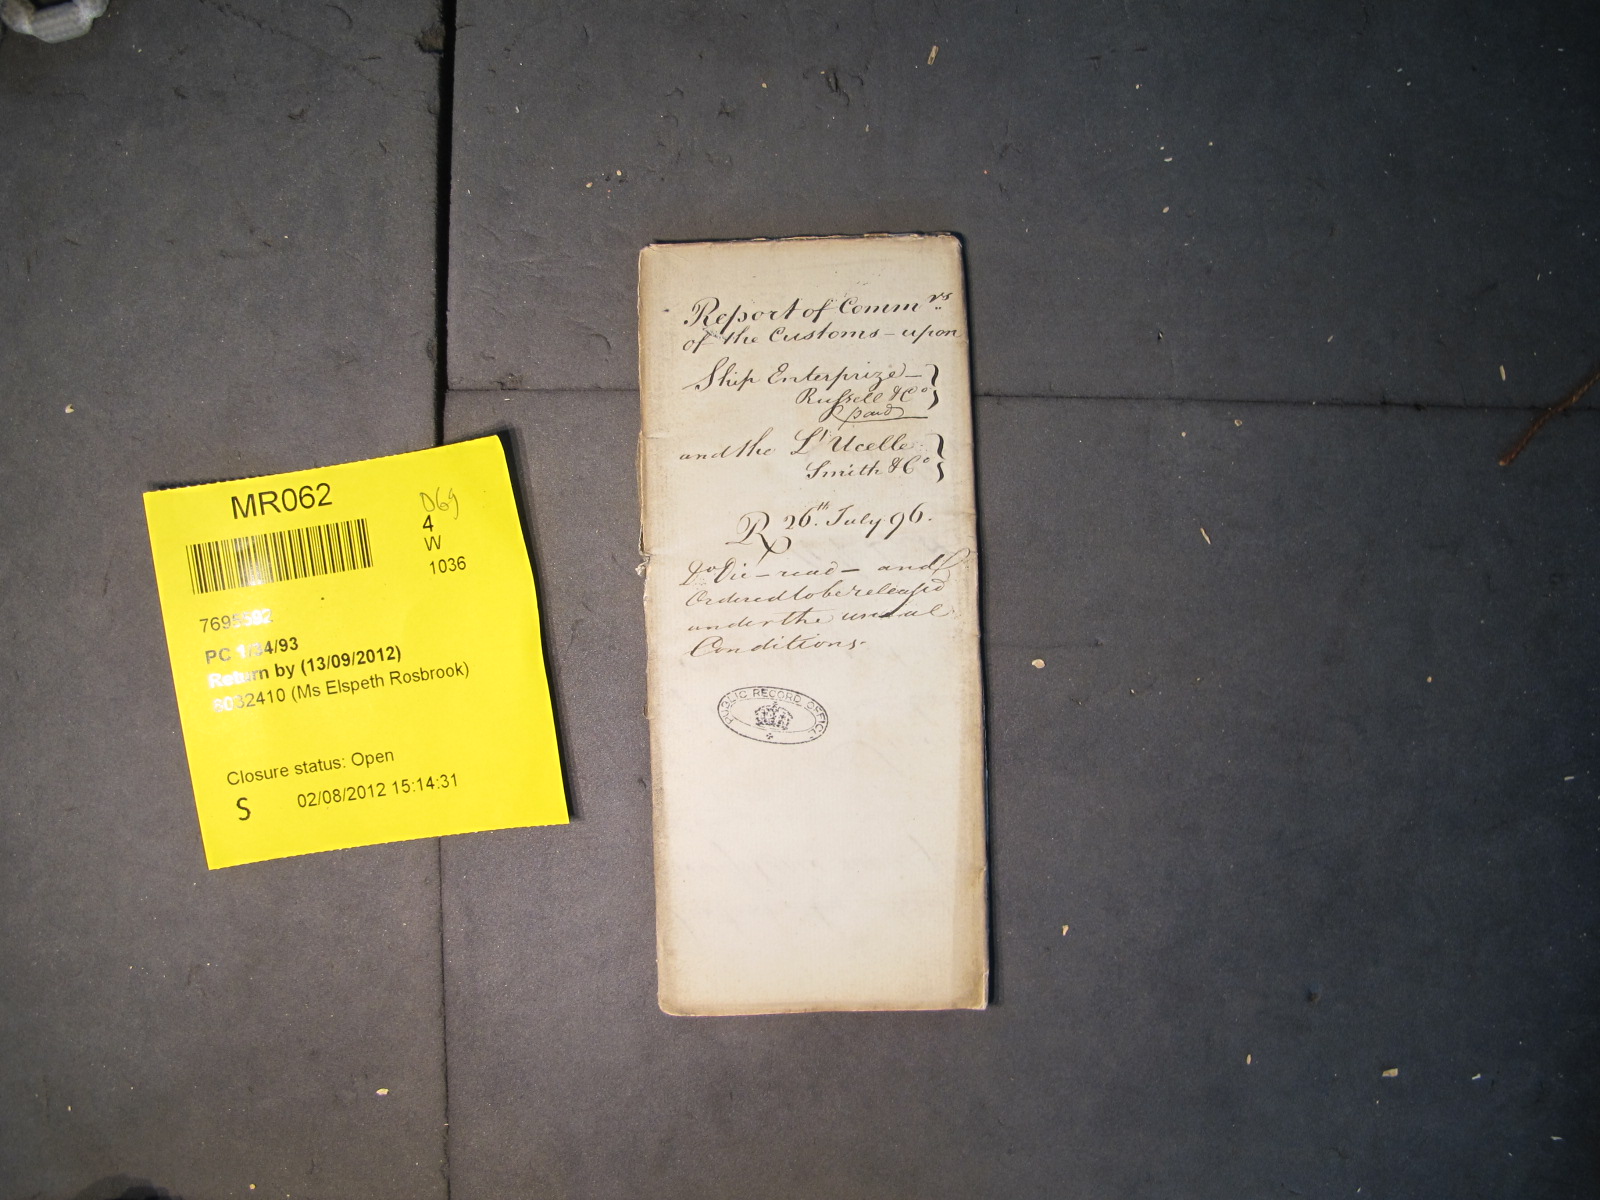 MR062
D69
4
W
1036
7695592
PC 1/34/93
Return by (13/09/2012)
8032410 (Ms Elspeth Rosbrook)
Closure status: Open
S 02/08/2012 15:14:31
Report of Comm.rs
of the Customs - upon
Ship Enterprize -
Russell & Co
and the Lt Ucelle
Smith & Co
R 26th July 96.
Do Die - read - and
Ordered to be released
under the usual
Conditions.
PUBLIC RECORD OFFICE